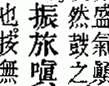 盛氣顚
然鼓之
振旅嗔
也按無